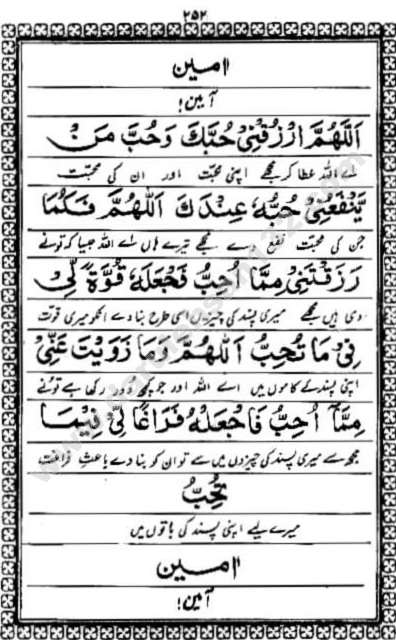 ۲۵۲
اٰمین
آمین!
اَللّٰهُمَّ ارْزُقْنِیْ حُبَّكَ وَحُبَّ مَنْ
اے اللہ عطا کر مجھے اپنی محبّت اور ان کی محبّت
یَّنْفَعُنِیْ حُبُّهٗ عِنْدَكَ اَللّٰهُمَّ فَكَمَا
جن کی محبّت نفع دے مجھے تیرے ہاں اے اللہ جیسا کہ تونے
رَزَقْتَنِیْ مِمَّا اُحِبُّ فَجْعَلْهُ قُوَّةً لِّیْ
دی ہیں مجھے میری پسند کی چیزیں اسی طرح بنا دے انکو میری قوت
فِیْ مَا تُحِبُّ اَللّٰهُمَّ وَمَا زَوَیْتَ عَنِّیْ
اپنی پسند کے کاموں میں اے اللہ اور جو کچھ دُور رکھا ہے تونے
مِمَّا اُحِبُّ فَاجْعَلْهُ فَرَاغًا لِّیْ فِیْمَا
مجھ سے میری پسند کی چیزوں میں سے تو ان کو بنا دے باعثِ فراغت
تُحِبُّ
میرے لیے اپنی پسند کی باتوں میں
اٰمین
آمین!